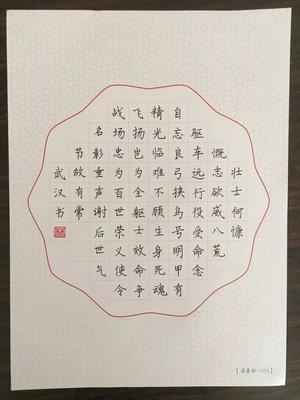 壮士何慷
慨志欲威八荒
驱车远行役受命念
自忘良弓挟乌号明甲有
精光临难不顾生身死魂
飞扬岂为全躯士效命争
战场忠为百世荣义使令
名彰垂声谢后世气
节故有常
武汉书